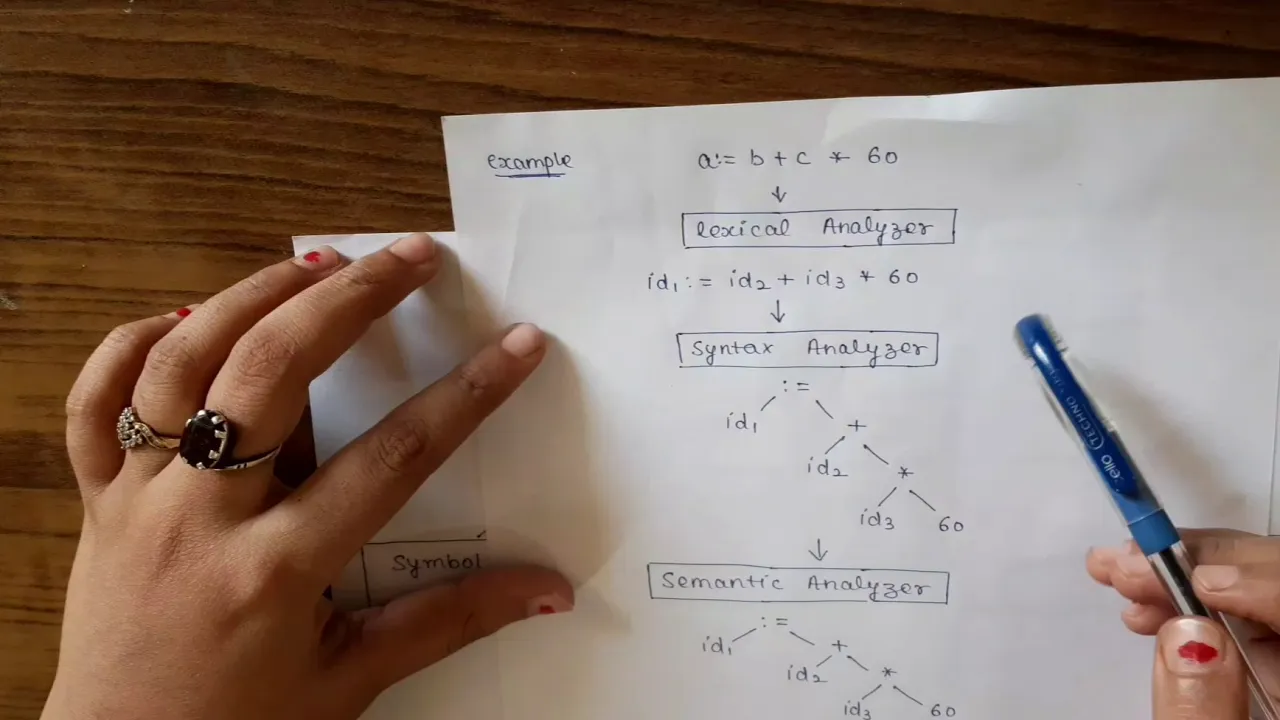 example
a:= b + c * 60
↓
Lexical Analyzer
id₁ := id₂ + id₃ * 60
↓
Syntax Analyzer
:=
id₁ +
id₂ *
id₃ 60
↓
Semantic Analyzer
:=
id₁ +
id₂ *
id₃ 60
Symbol
cello TECHNO